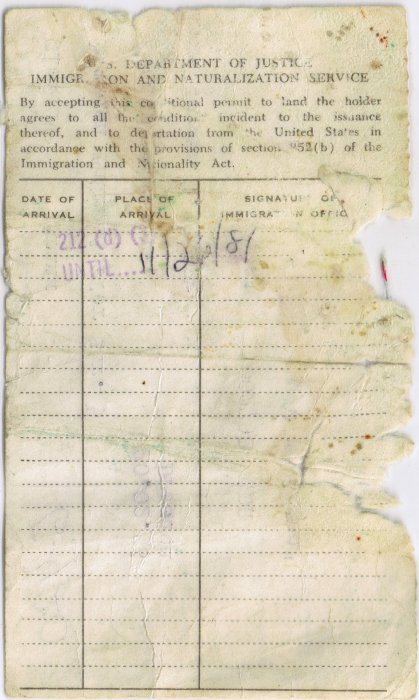 U.S. DEPARTMENT OF JUSTICE
IMMIGRATION AND NATURALIZATION SERVICE
By accepting this conditional permit to land the holder
agrees to all the conditions incident to the issuance
thereof, and to deportation from the United States in
accordance with the provisions of section 252(b) of the
Immigration and Nationality Act.
DATE OF ARRIVAL PLACE OF ARRIVAL SIGNATURE OF IMMIGRATION OFFIC
212 (d) (
UNTIL.... 11/26/81